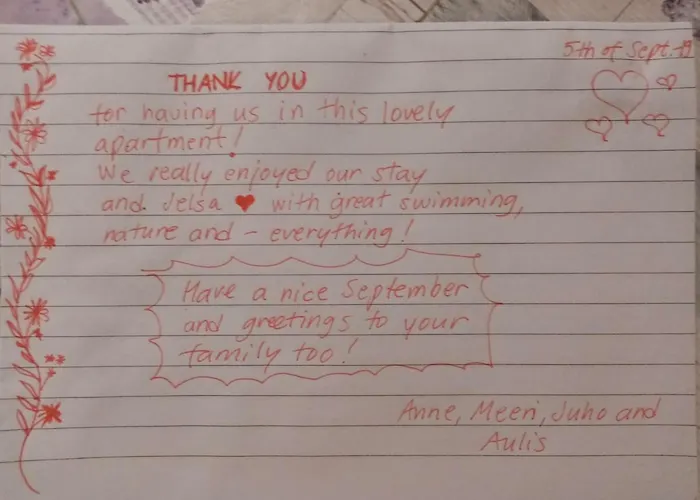 5th of Sept. 19
THANK YOU
for having us in this lovely
apartment!
We really enjoyed our stay
and Jelsa ♥ with great swimming,
nature and - everything!
Have a nice September
and greetings to your
family too!
Anne, Meeri, Juho and
Aulis